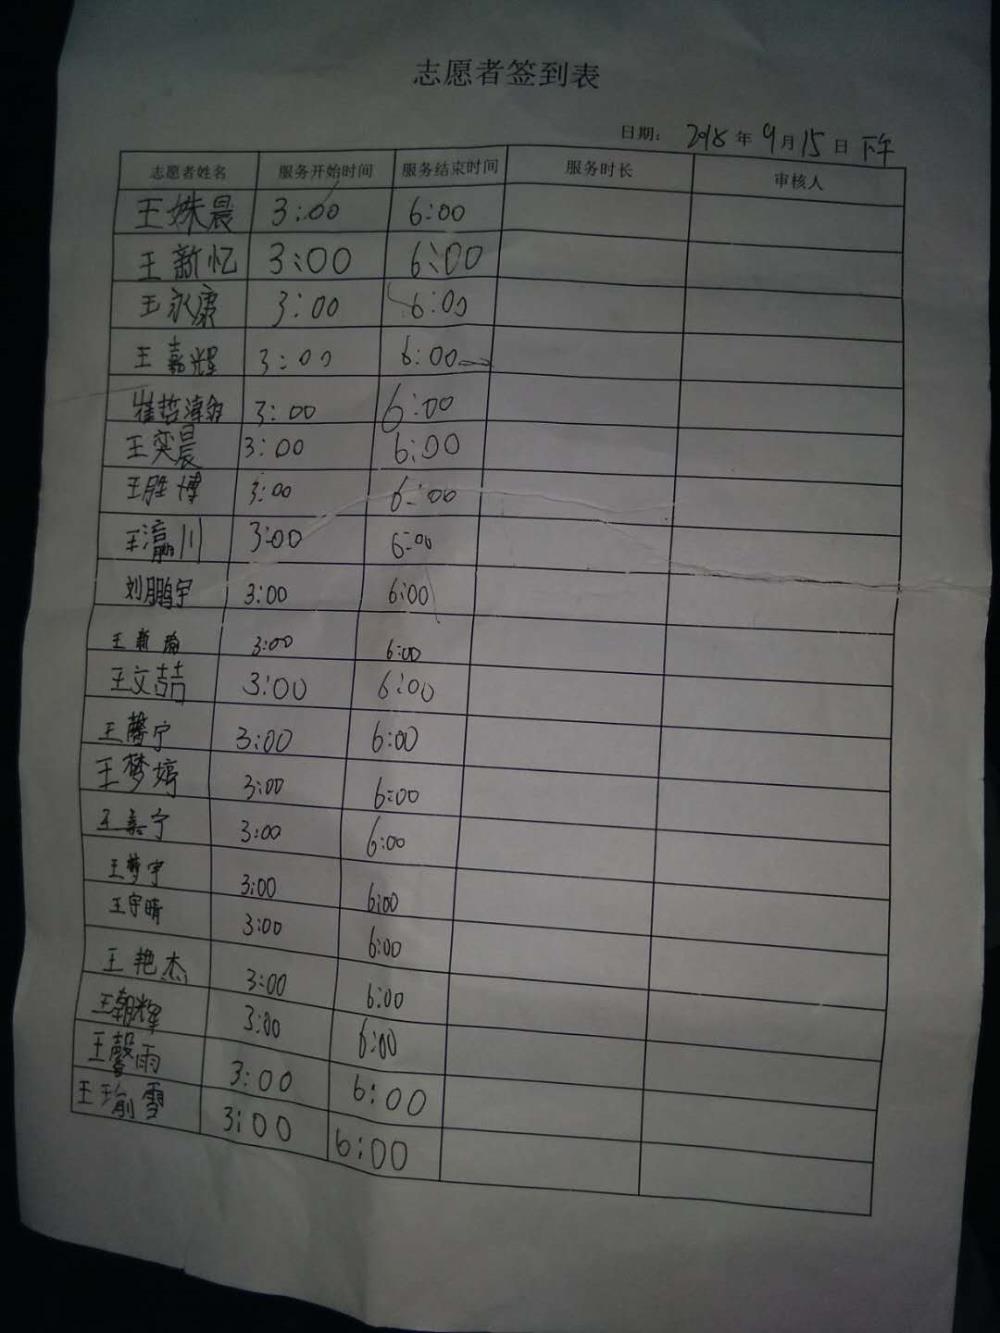 志愿者签到表
日期： 2018 年 9 月 15 日 下午
志愿者姓名 服务开始时间 服务结束时间 服务时长 审核人
王姝晨 3:00 6:00
王新忆 3:00 6:00
王永康 3:00 6:00
王嘉辉 3:00 6:00
崔哲 3:00 6:00
王奕晨 3:00 6:00
王胜博 3:00 6:00
王瀛川 3:00 6:00
刘鹏宇 3:00 6:00
王新瑜 3:00 6:00
王文喆 3:00 6:00
王馨宁 3:00 6:00
王梦婷 3:00 6:00
王嘉宁 3:00 6:00
王梦宇 3:00 6:00
王宇晴 3:00 6:00
王艳杰 3:00 6:00
王朝辉 3:00 6:00
王馨雨 3:00 6:00
王瑜雪 3:00 6:00